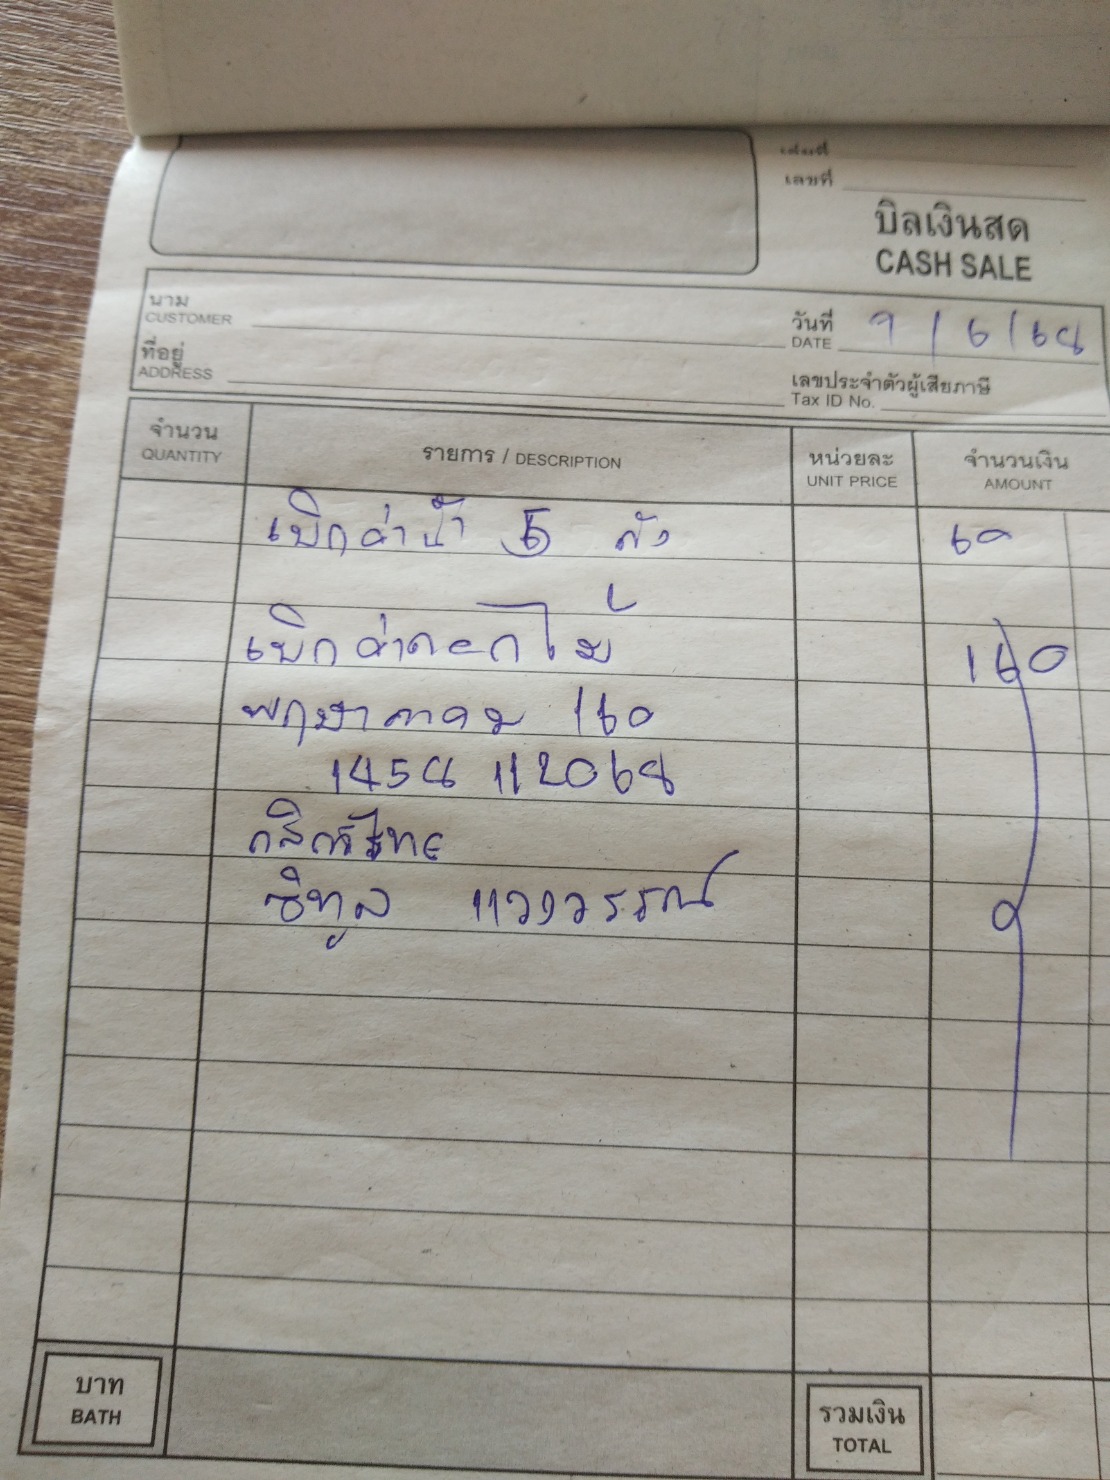 เล่มที่
เลขที่
บิลเงินสด
CASH SALE
นาม
CUSTOMER
วันที่ 9/6/68
DATE
ที่อยู่
ADDRESS
เลขประจำตัวผู้เสียภาษี
Tax ID No.
จำนวน รายการ / DESCRIPTION หน่วยละ จำนวนเงิน
QUANTITY UNIT PRICE AMOUNT
เบิกค่าน้ำ 5 ถัง 60
เบิกค่าดอกไม้ 160
พฤษาคม 160
1458 112068
กสิกรไทย
แววววรรณ์
บาท รวมเงิน
BATH TOTAL